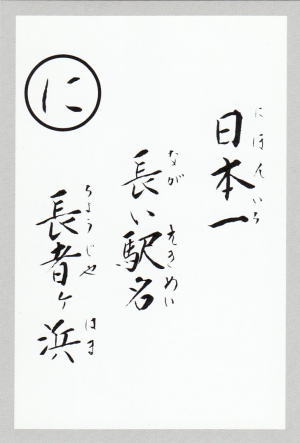 に
日本一
にほんいち
長い駅名
ながえきめい
長者ヶ浜
ちょうじゃはま